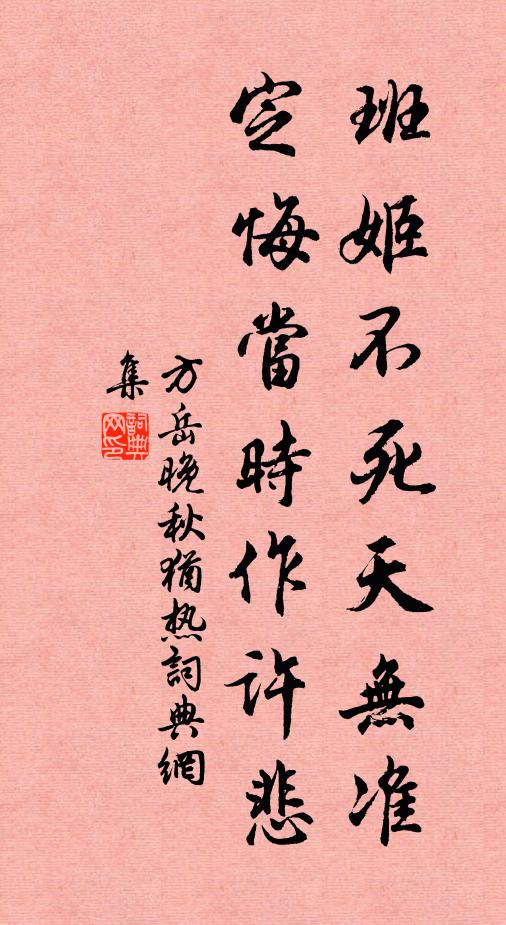 班姬不死天無准
定悔當時作許悲
方岳晚秋猶热詞典網
集
詞典
网印